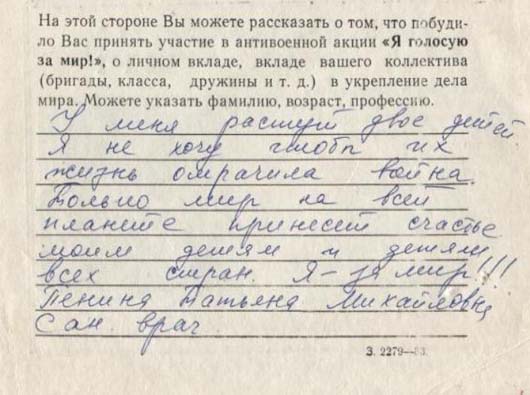 На этой стороне Вы можете рассказать о том, что побуди-
ло Вас принять участие в антивоенной акции «Я голосую
за мир!», о личном вкладе, вкладе вашего коллектива
(бригады, класса, дружины и т. д.) в укрепление дела
мира. Можете указать фамилию, возраст, профессию.
У меня растут двое детей
Я не хочу чтобы их
жизнь омрачила война.
Только мир на всей
планете принесет счастье
моим детям и детям
всех стран. Я – за мир!!!
Пенина Татьяна Михайловна
Сан. врач
З. 2279—83.